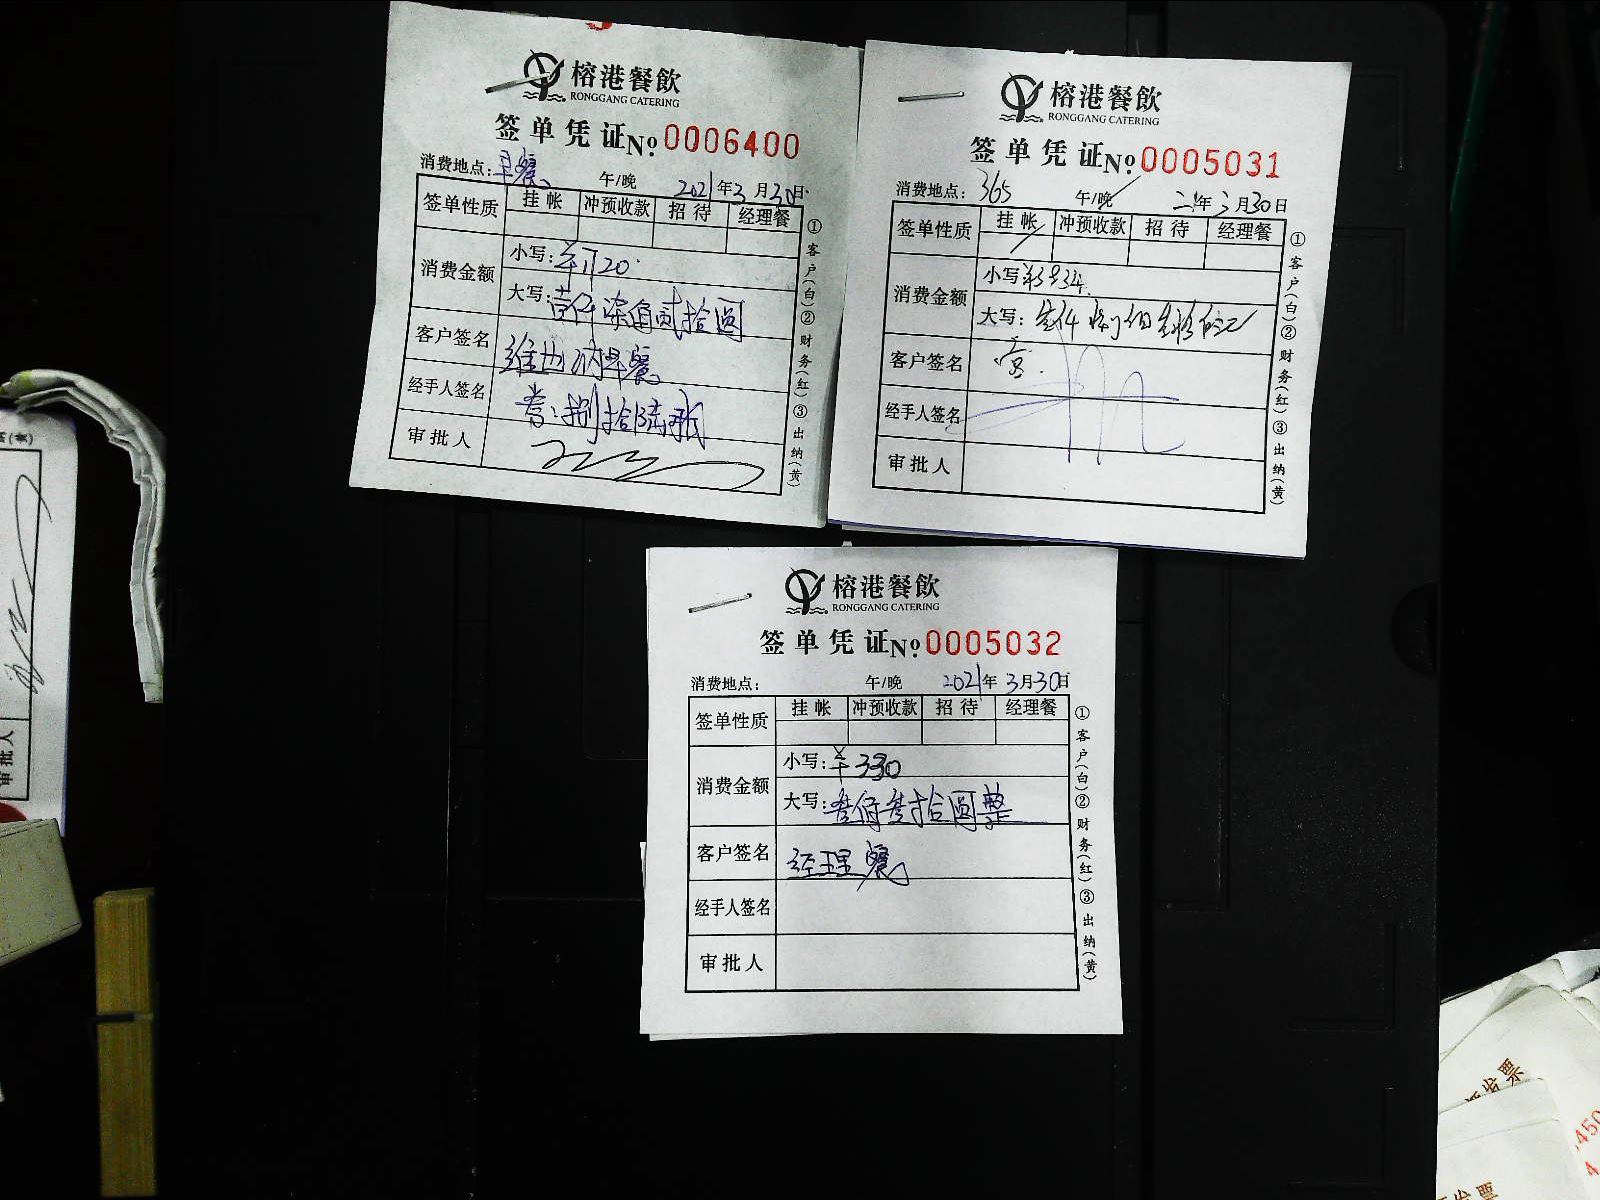 榕港餐飲
RONGGANG CATERING
签单凭证 No 0006400
消费地点：早餐 午/晚 2021年3月30日
签单性质 挂帐 冲预收款 招待 经理餐
消费金额 小写：¥1720
大写：壹仟柒佰贰拾圆
客户签名 维也纳早餐
经手人签名 券：捌拾陆张
审批人
①客户(白)②财务(红)③出纳(黄)
榕港餐飲
RONGGANG CATERING
签单凭证 No 0005031
消费地点：365 午/晚 21年3月30日
签单性质 挂帐 冲预收款 招待 经理餐
消费金额 小写
大写：
客户签名
经手人签名
审批人
①客户(白)②财务(红)③出纳(黄)
榕港餐飲
RONGGANG CATERING
签单凭证 No 0005032
消费地点： 午/晚 2021年3月30日
签单性质 挂帐 冲预收款 招待 经理餐
消费金额 小写：¥330
大写：叁佰叁拾圆整
客户签名 经理餐
经手人签名
审批人
①客户(白)②财务(红)③出纳(黄)
审批人
发票
发票